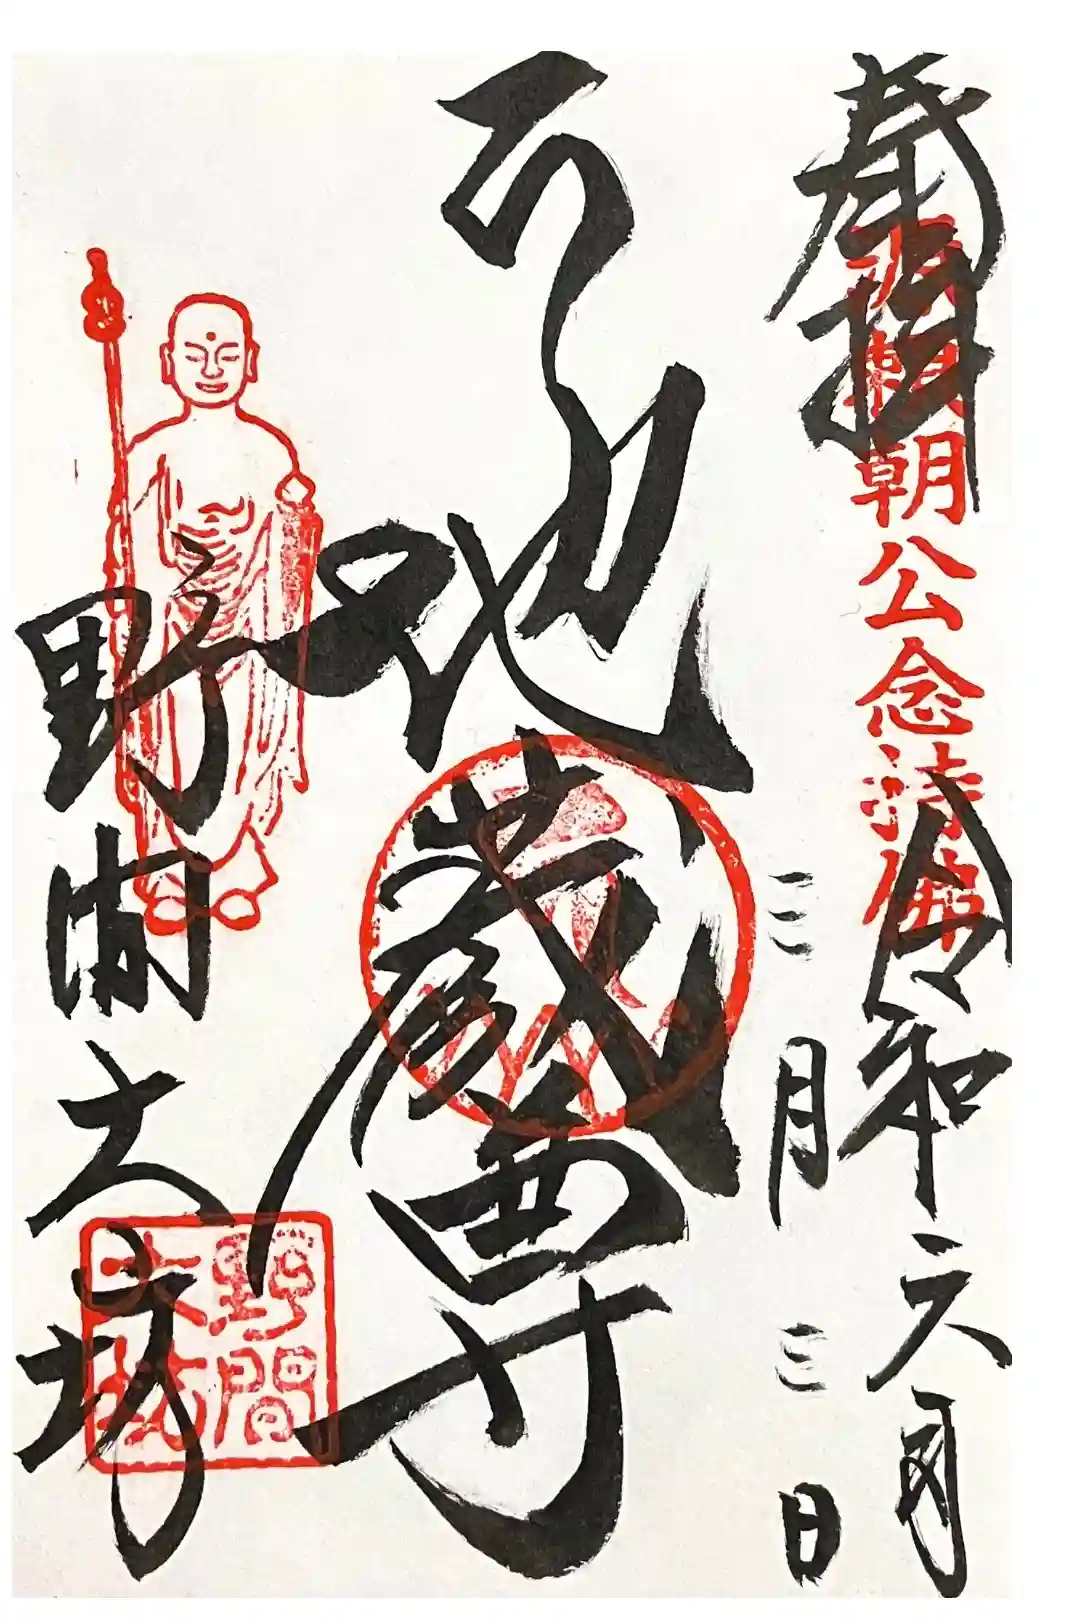 奉拝
源頼朝公念持佛
令和六年
三月三日
地蔵尊
野間大坊
野間
大坊